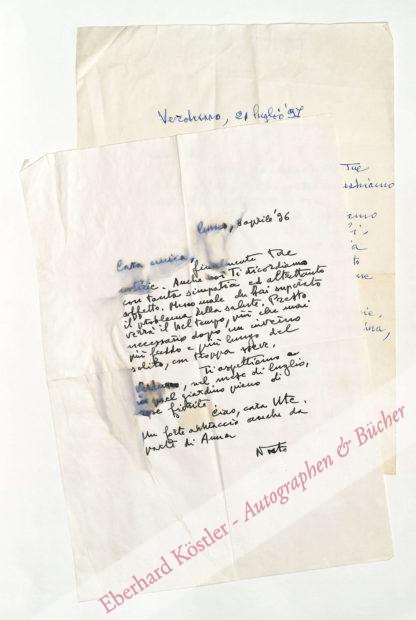 Verduno, 21 luglio '97
Tue
, 8 aprile '96
Cara amica,
finalmente Tue
notizie. Anche noi Ti ricordiamo
con tanta simpatia ed altrettanto
affetto. Meno male che hai superato
il problema della salute. Presto
verrà il bel tempo, più che mai
necessario dopo un inverno
più freddo e più lungo del
solito, con troppa neve.
Ti aspettiamo a
, nel mese di luglio,
in quel giardino pieno di
rose fiorite
ciao, cara Ute.
Un forte abbraccio anche da
parte di Anna
Eberhard Köstler - Autographen & Bücher